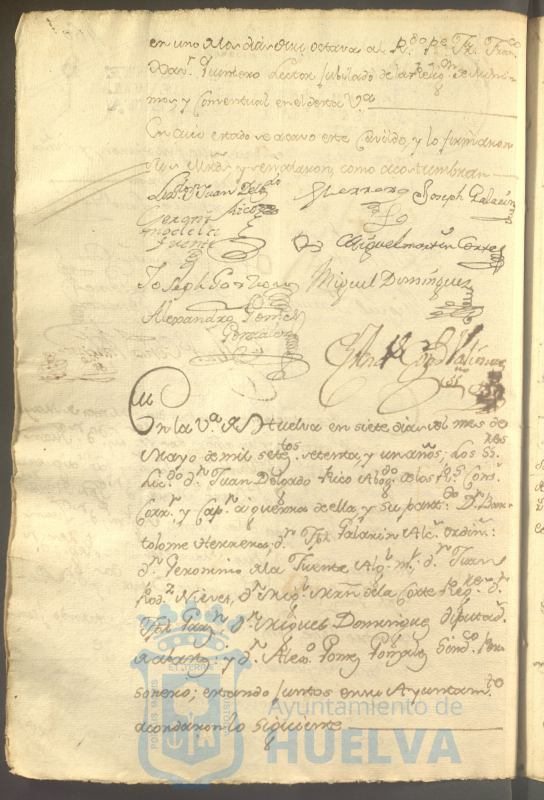 en uno de los dias de su octava al R.do P.e Fr. Fran.co
Xav.r Quintero Lector Jubilado de la relig.n de
mos y Conventual en el de esta V.a
En cuio estado se acavo este Cavildo, y lo firmaron
sus Mrds y señalaron, como acostumbran
Lizd.o Dn Juan Delgado Rico
Herrera
Joseph Palazin
Geronimo de la Fuente
Miguel martin Cortes
Joseph Garzon
Miguel Dominguez
Alexandro Gomez Gonzalez
En la V.a de Huelva en siete dias del mes de
Mayo de mil setez.tos setenta y un años; Los SS.res
Liz.do d.n Juan Delgado Rico Abog.do de los R.s Cons.s
Corr.r y Cap.n a guerra de ella, y su part.do D.n Bar
tolome Herrera, d.n Jph. Palazin Alc.s Ordin.s
d.n Geronimo de la Fuente Alg.l m.r d.n Juan
Rod.z Nieves, d.n Mig.l Mrn. de la Corte Reg.res d.n
Jph. Garz.n d.n Miguel Dominguez diputad.s
y d.n Alex.o Gomez Gonzalez Sind.co Per
sonero; estando juntos en su Ayuntam.to
acordaron lo siguiente
PORTUS MARIS ET TERRE CUSTODIA
Ayuntamiento de
HUELVA